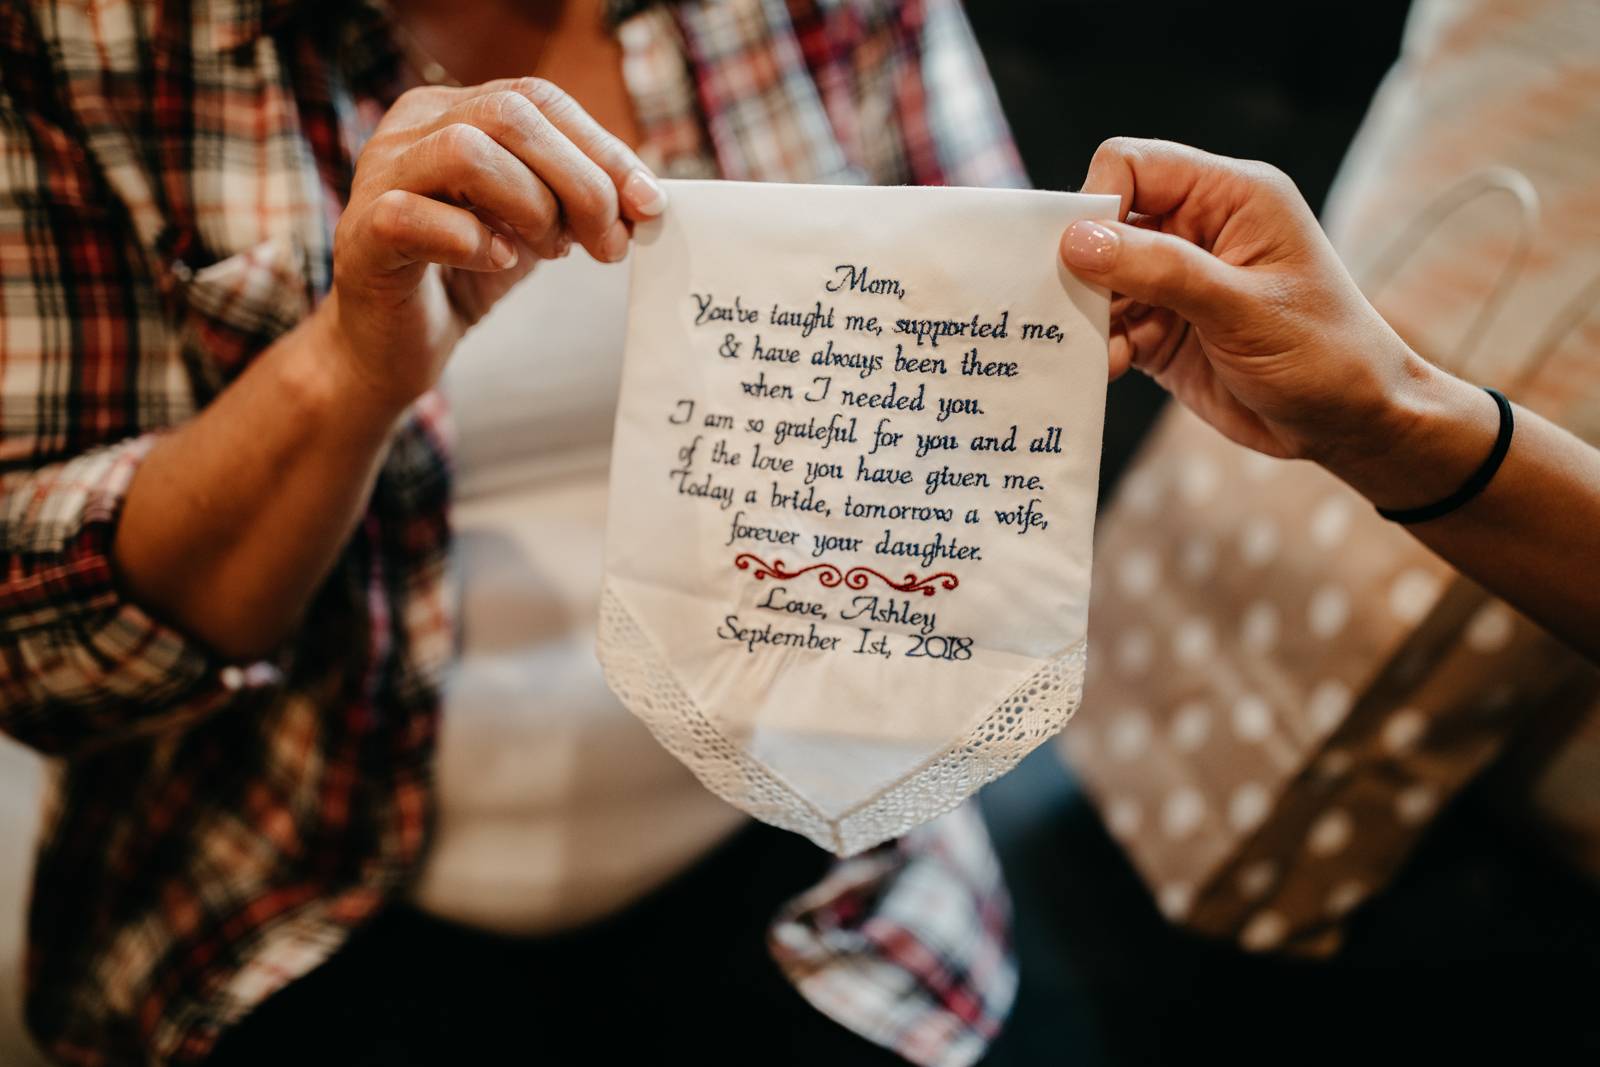 Mom,
You've taught me, supported me,
& have always been there
when I needed you.
I am so grateful for you and all
of the love you have given me.
Today a bride, tomorrow a wife,
forever your daughter.
Love, Ashley
September 1st, 2018